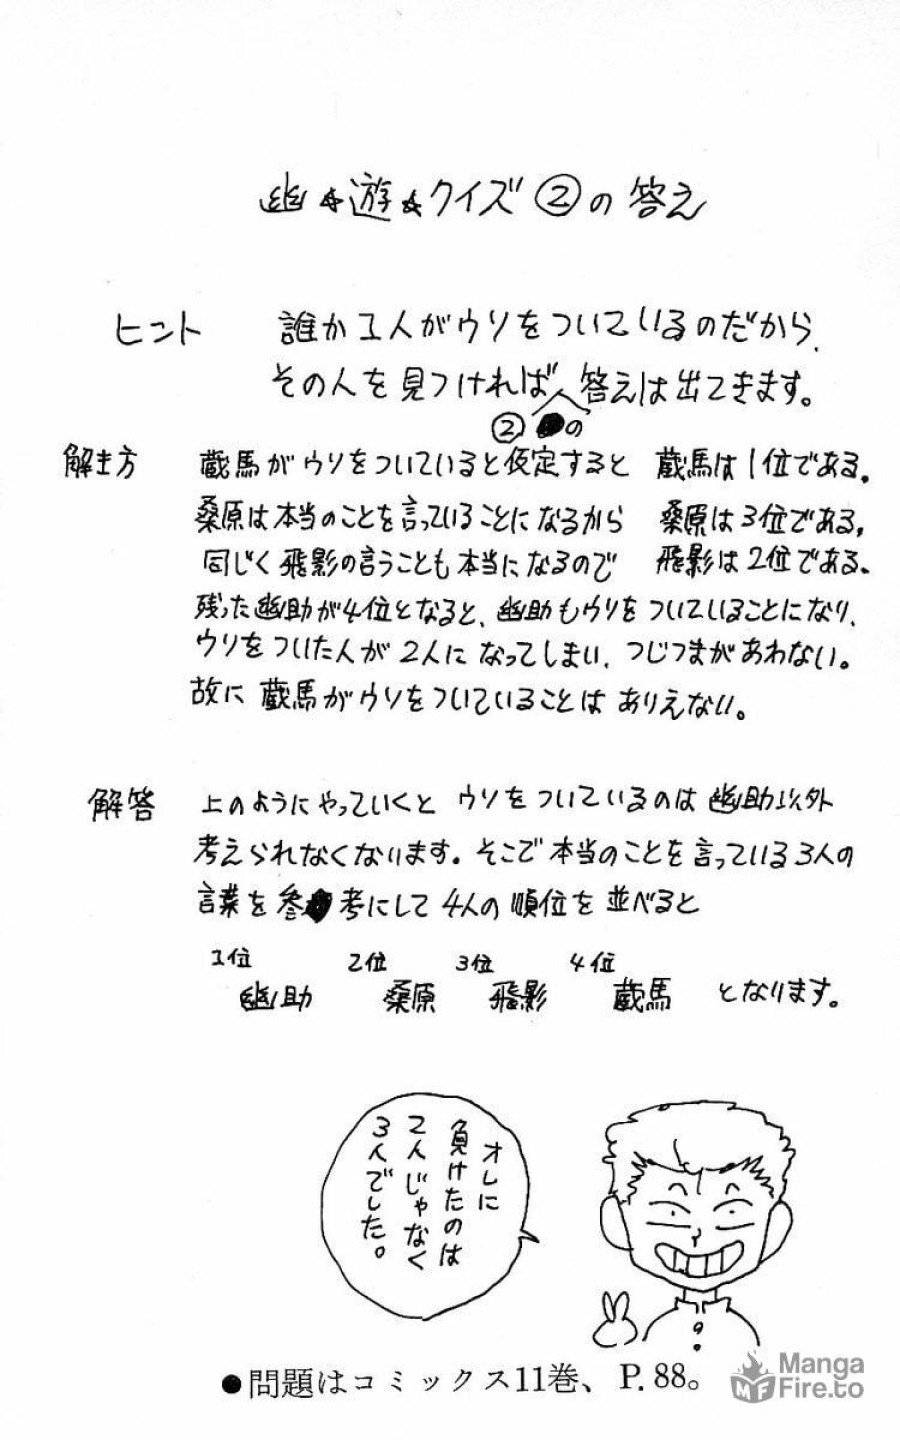 幽☆遊☆クイズ②の答え
ヒント 誰か1人がウソをついているのだから、
その人を見つければ②の答えは出てきます。
解き方 蔵馬がウソをついていると仮定すると 蔵馬は1位である。
桑原は本当のことを言っていることになるから 桑原は3位である。
同じく飛影の言うことも本当になるので 飛影は2位である。
残った幽助が4位となると、幽助もウソをついていることになり、
ウソをついた人が2人になってしまい、つじつまがあわない。
故に蔵馬がウソをついていることはありえない。
解答 上のようにやっていくと ウソをついているのは幽助以外
考えられなくなります。そこで本当のことを言っている3人の
言葉を参考にして4人の順位を並べると
1位 2位 3位 4位
幽助 桑原 飛影 蔵馬 となります。
オレに
負けたのは
2人じゃなく
3人でした。
●問題はコミックス11巻、P.88。
Manga
Fire.to
MF